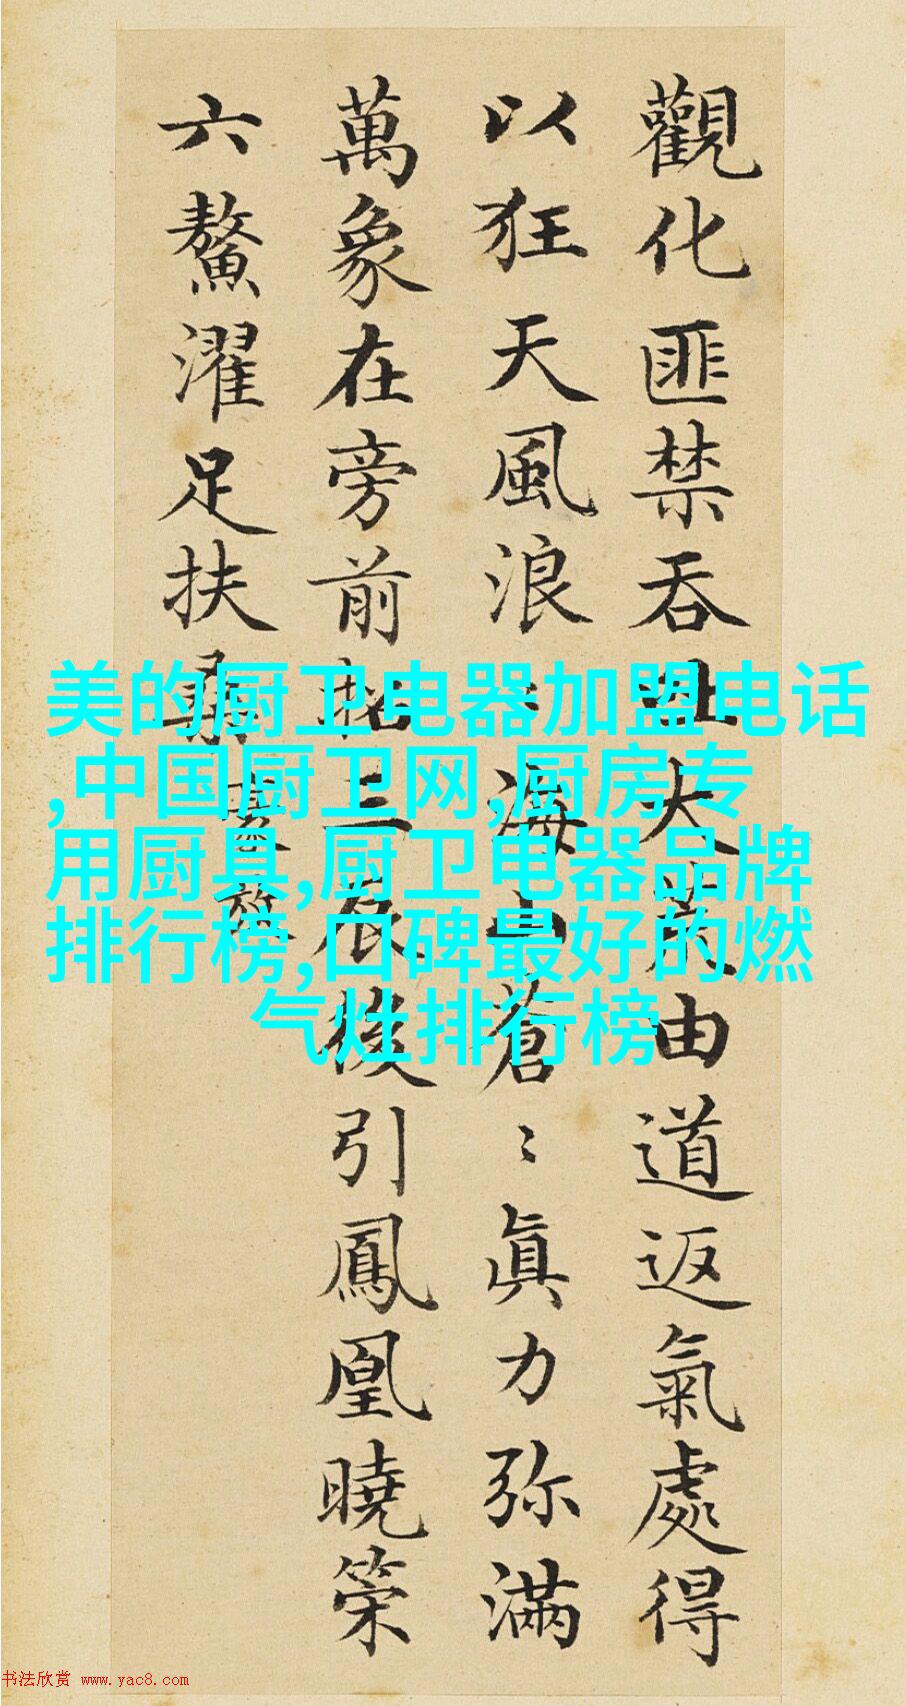 觀化匪禁吞吐大荒由道返氣處得
以狂天風浪〻海山蒼〻真力弥滿
萬象在旁前招三辰後引鳳凰曉策
六鰲濯足扶桑
美的厨卫电器加盟电话
,中国厨卫网,厨房专
用厨具,厨卫电器品牌
排行榜,口碑最好的燃
气灶排行榜
书法欣赏 www.yac8.com